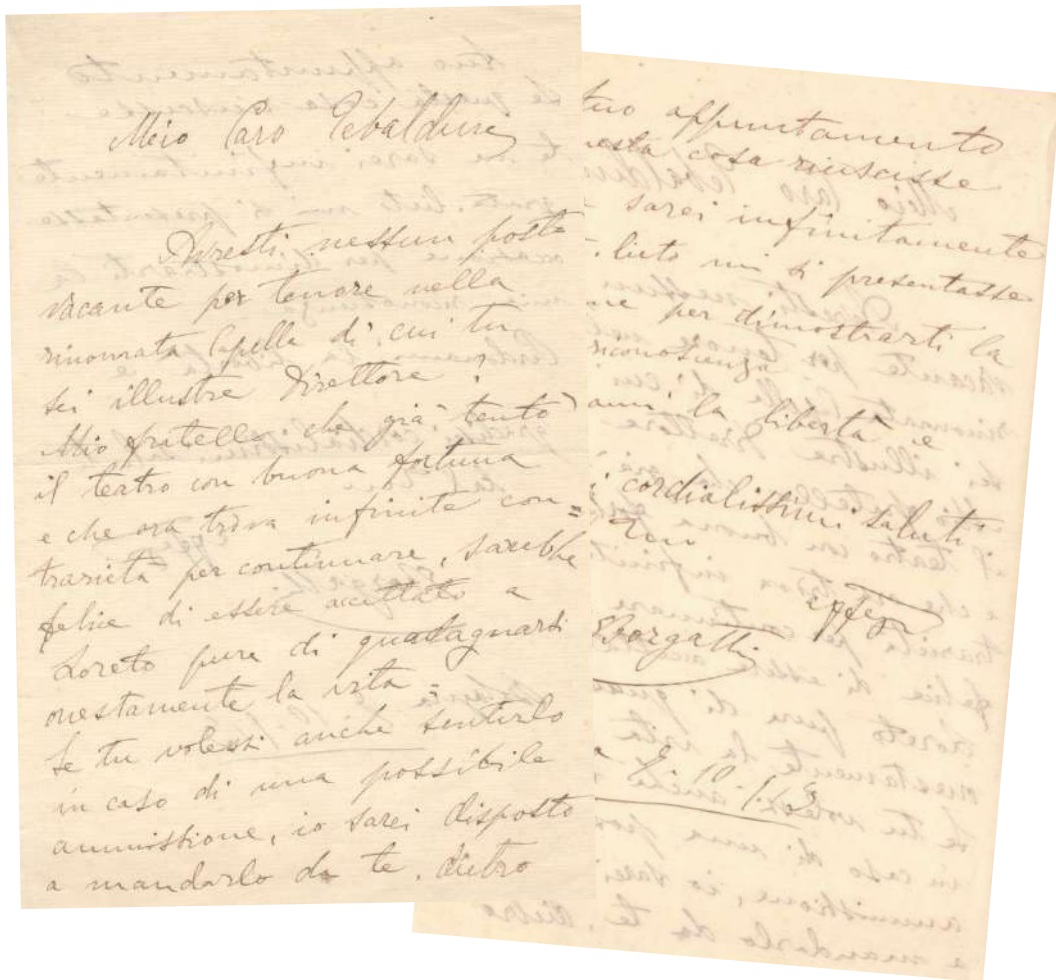 Mio Caro Tebaldini
Avresti nessun posto
vacante per tenore nella
rinomata Capella di cui tu
sei illustre Direttore?
Mio fratello che già tentò
il teatro con buona fortuna
e che ora trova infinite con=
trarietà per continuare, sarebbe
felice di essere accettato a
Loreto pure di guadagnarsi
onestamente la vita =
Se tu volessi anche sentirlo
in caso di una possibile
ammissione, io sarei disposto
a mandarlo da te, dietro
tuo appuntamento
cosa riuscisse
sarei infinitamente
lieto mi si presentasse
per dimostrarti la
riconoscenza
la libertà e
cordialissimi saluti
Tuo
Borgatti